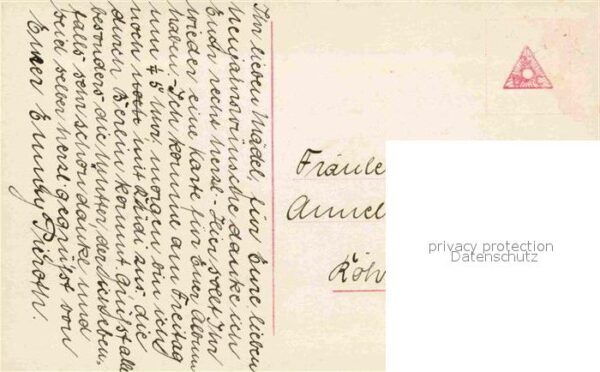 Ihr lieben Mädel, für Eure lieben
Neujahrswünsche danke ich
Euch recht herzl. - Hier sollt Ihr
wieder eine Karte für Euer Album
haben - Ich komme am Freitag
um 5 Uhr, morgen bin ich
noch mit zus., die
durch Berlin kommt. Grüßt alle
besonders die Mütter, der
falls sehr schön danke und
seid selber herzl. gegrüßt von
Eurer Emmy
Fräule
Annel
Röh
privacy protection
Datenschutz